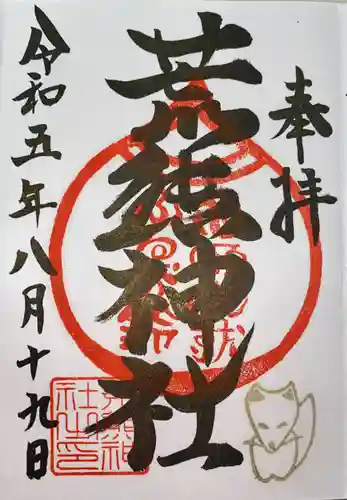 奉拝
荒熊神社
令和五年八月十九日
荒熊神
社之印